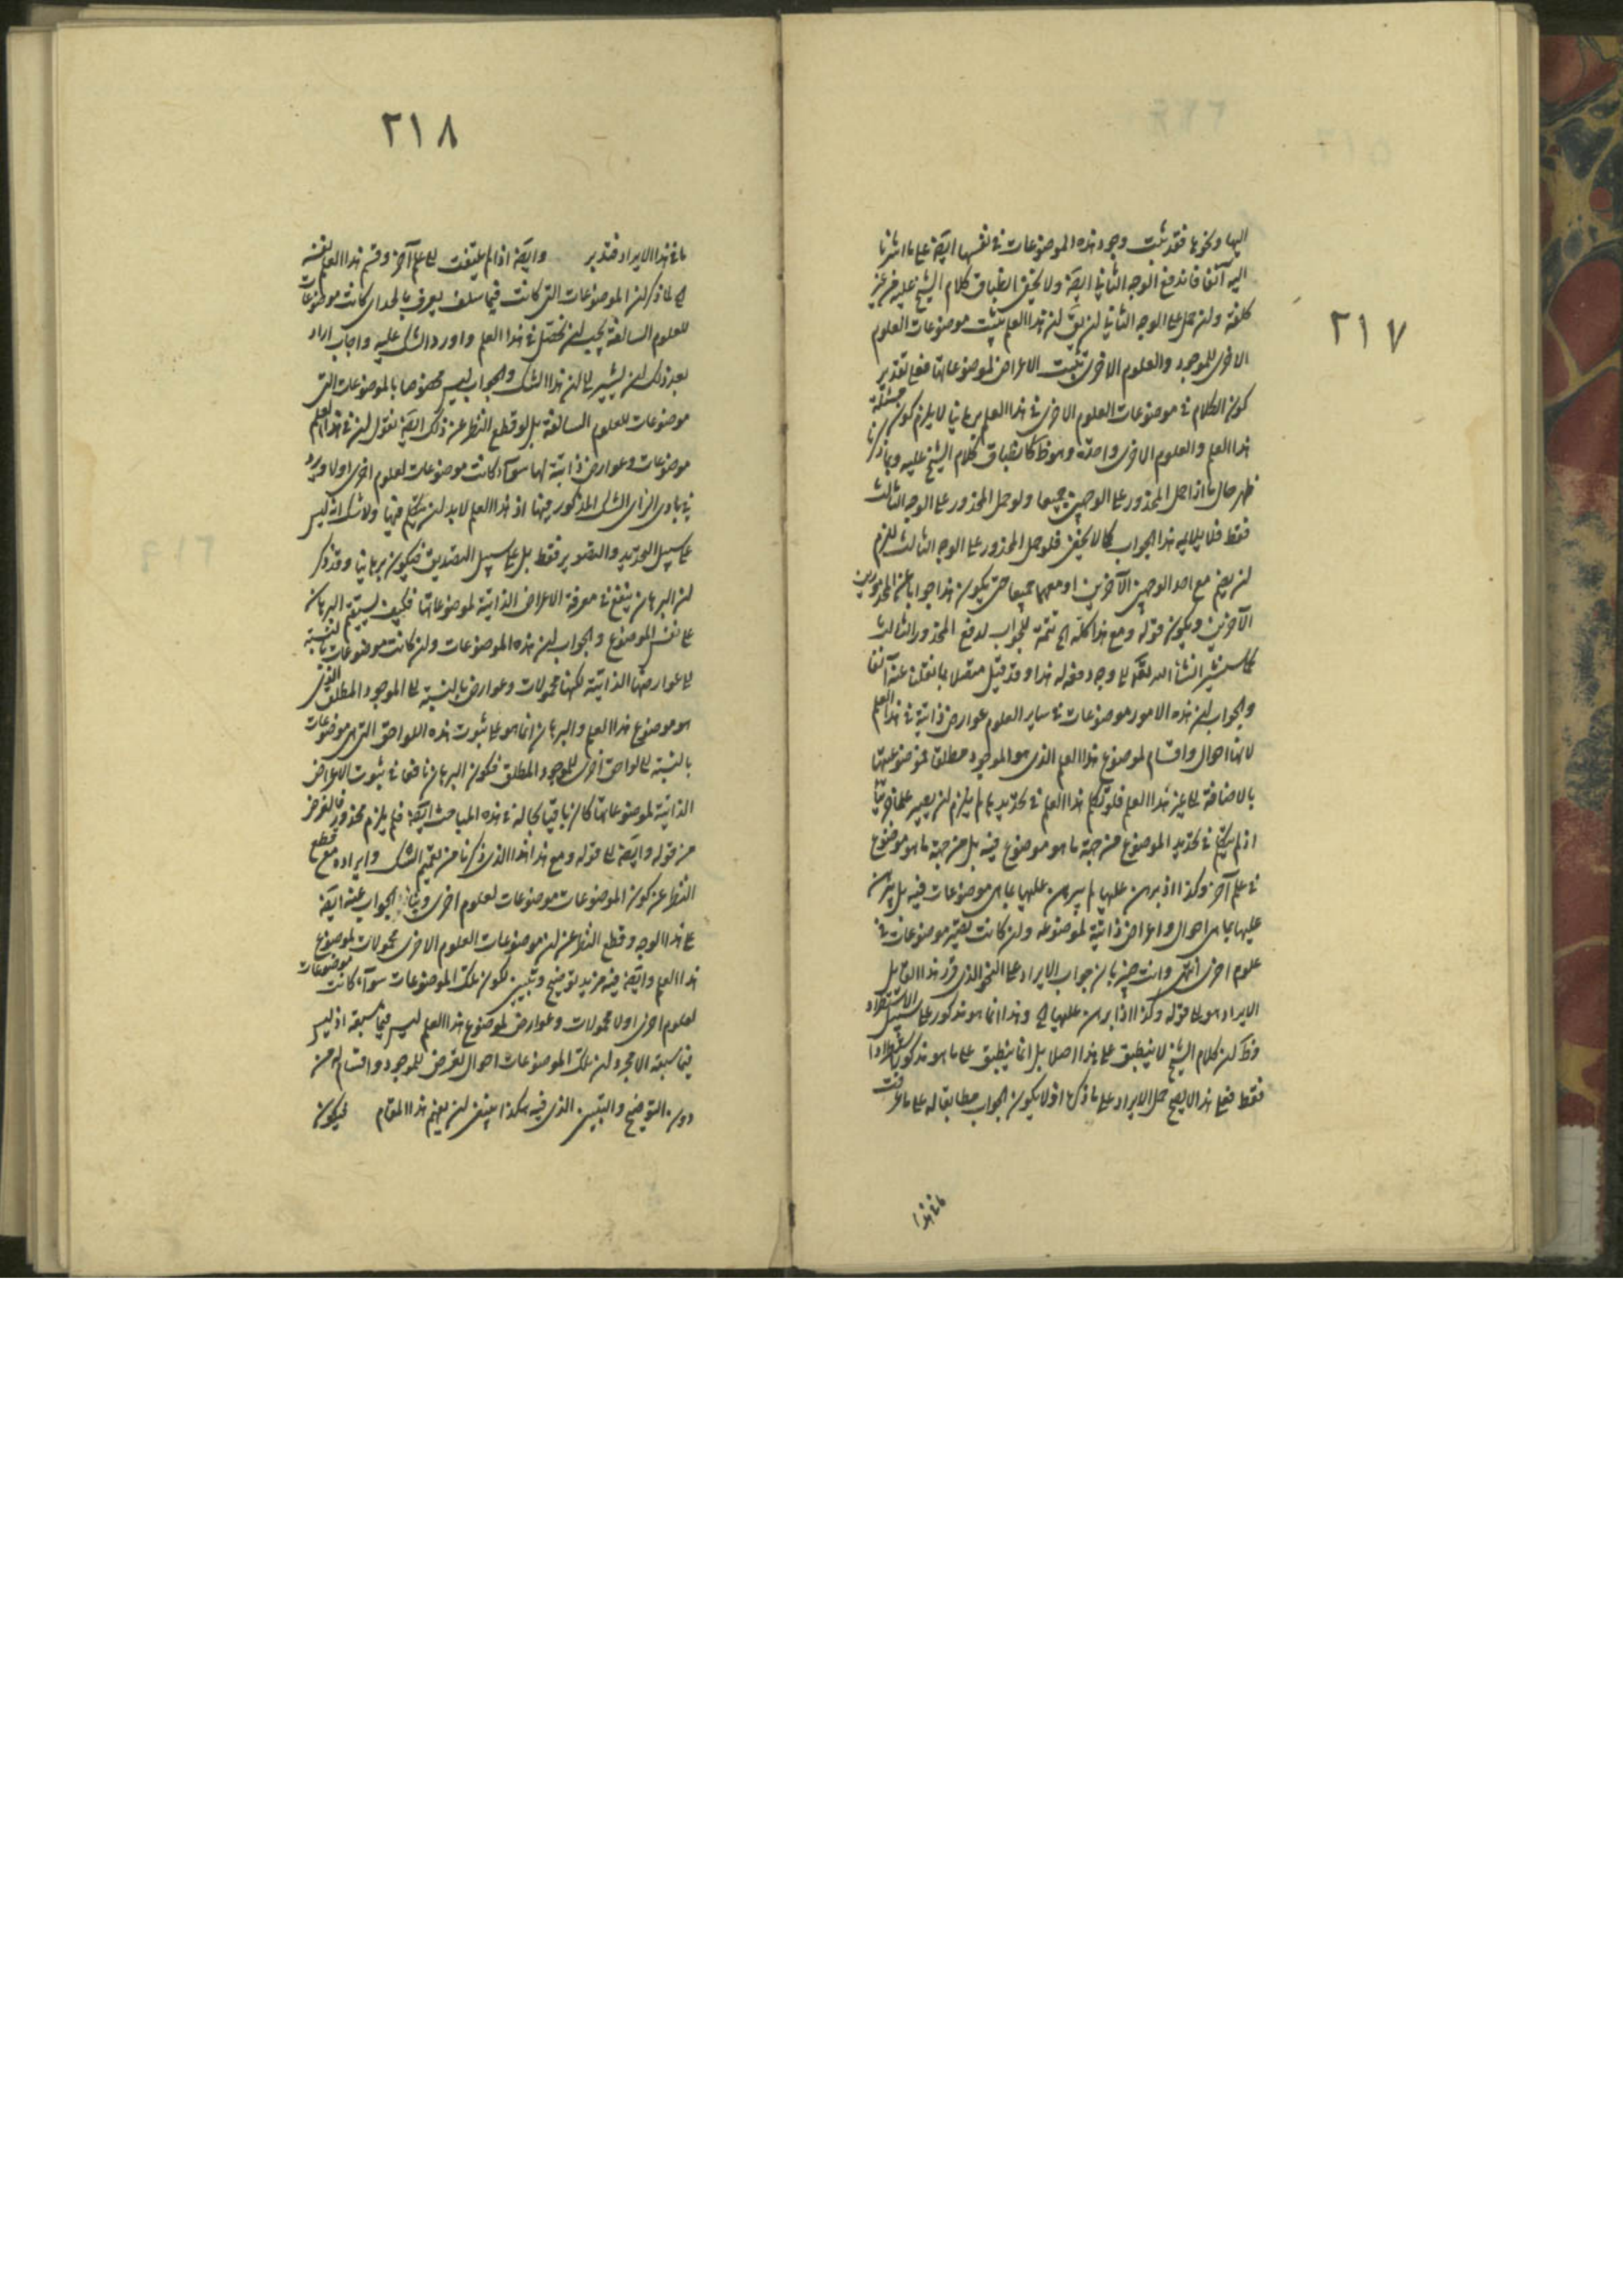 ٢١٧
اليها ونحوها فقد ثبت وجود هذه الموضوعات في نفسها ايضا على ما اشرنا
اليه آنفا فاندفع الوجه الثاني ايضا ولا يخفى انطباق كلام الشيخ عليه من غير
كلفة ولئن حمل على الوجه الثاني لئن يق لئن هذا العلم يثبت موضوعات العلوم
الاخرى للموجود والعلوم الاخرى تثبت الاعراض لموضوعاتها فعلى تقدير
كون الكلام في موضوعات العلوم الاخرى في هذا العلم برهانيا لا يلزم كون مسئلة
هذا العلم والعلوم الاخرى واحدة وهو ظ كانطباق كلام الشيخ عليه وبما ذكرنا
ظهر حال ما اذا حمل المحذور على الوجهين جميعا ولو حمل المحذور على الوجه الثالث
فقط فلا يلايمه هذا الجواب كما لا يخفى فلو حمل المحذور على الوجه الثالث للزم
لن يضم مع احد الوجهين الآخرين او معهما جميعا حتى يكون هذا جوابا عن المحذورين
الآخرين ويكون قوله ومع هذا كله الخ تتمة للجواب لدفع المحذور الثالث
كما سنشير انشأ الله تعالى الى وجه دفعه له هذا وقد قيل متصلا بما نقلنا عنه آنفا
والجواب لئن هذه الامور موضوعات في ساير العلوم عوارض ذاتية في هذا العلم
لانها احوال واقسام لموضوع هذا العلم الذي هو الموجود مطلق فموضوعيتها
بالاضافة الى غير هذا العلم فلو تكلم هذا العلم في تحديدها لم يلزم لن يصير علما جزئيا
اذ لم يتكلم في تحديد الموضوع من جهة ما هو موضوع فيه بل من جهة ما هو موضوع
في علم آخر وكذا اذ برهن عليها لم يبرهن عليها بما هي موضوعات فيه بل يبرهن
عليها بما هي احوال واعراض ذاتية لموضوعه ولن كانت تصير موضوعات في
علوم اخرى انتهى وانت خبير بان جواب الايراد على النحو الذي قرر هذا القايل
الايراد هو الى قوله وكذا اذا برهن عليها الخ وهذا انما هو مذكور على سبيل الاستطراد
وظ لكن كلام الشيخ لا ينطبق على هذا اصلا بل انما ينطبق على ما هو مذكور استطرادا
فقط فعلى هذا لا يصح حمل الايراد على ما ذكره اذ لا يكون الجواب مطابقا له على ما عرفت
ما في هذا
٢١٨
ما في هذا الايراد فتدبر وايضا اذا لم يلتفت الى علم آخر وقسم هذا العلم نفسه
الخ لما ذكر لن الموضوعات التي كانت فيما سلف يعرف بالحد اى كانت موضوعات
للعلوم السالفة يجب لن تحصل في هذا العلم واورد الشك عليه واجاب اراد
بعد ذلك لن يشير الى لن هذا الشك والجواب ليس مخصوصا بالموضوعات التي
موضوعات للعلوم السالفة بل لو قطع النظر عن ذلك ايضا نقول لن في هذا العلم
موضوعات وعوارض ذاتية لها سوآء كانت موضوعات لعلوم اخرى او لا ويرد
في بادي الراى الشك المذكور فيها اذ هذا العلم لا بد لن يتكلم فيها ولا شك انه ليس
على سبيل التحديد والتصوير فقط بل على سبيل التصديق فيكون برهانيا وقد ذكر
لن البرهان ينفع في معرفة الاعراض الذاتية لموضوعاتها فكيف يستقيم البرهان
على نفس الموضوع والجواب لن هذه الموضوعات ولن كانت موضوعات بالنسبة
الى عوارضها الذاتية لكنها محمولات وعوارض بالنسبة الى الموجود المطلق الذي
هو موضوع هذا العلم والبرهان انما هو على ثبوت هذه اللواحق التي هي موضوعات
بالنسبة الى لواحق اخرى للموجود المطلق فكون البرهان نافعا في ثبوت الاعراض
الذاتية لموضوعاتها كان باقيا بحاله في هذه المباحث ايضا فلم يلزم محذور فالغرض
من قوله وايضا الى قوله ومع هذا هذا الذي ذكرنا من تعميم الشك وايراده مع قطع
النظر عن كون الموضوعات موضوعات لعلوم اخرى وبناء الجواب عنه ايضا
على هذا الوجه وقطع النظر عن لن موضوعات العلوم الاخرى محمولات لموضوع
هذا العلم وايضا فيه مزيد توضيح وتبيين لكون تلك الموضوعات سوآء كانت موضوعات
لعلوم اخرى او لا محمولات وعوارض لموضوع هذا العلم ليس فيما سبقه اذ ليس
فيما سبقه الا مجرد لن تلك الموضوعات احوال تعرض للموجود واقسام له من
دون التوضيح والتبيين الذي فيه هكذا ينبغي لن يفهم هذا المقام فيكون